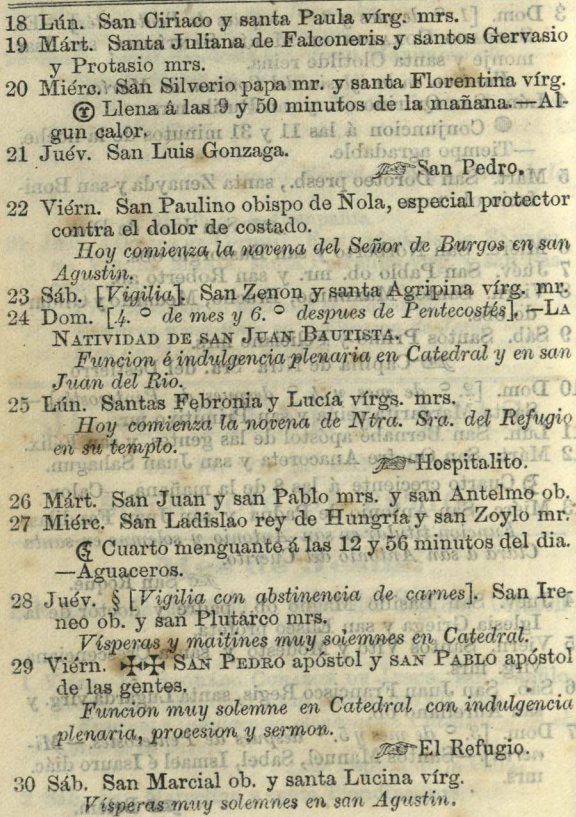 18 Lún. San Ciriaco y santa Paula vírg. mrs.
19 Márt. Santa Juliana de Falconeris y santos Gervasio
y Protasio mrs.
20 Miérc. San Silverio papa mr. y santa Florentina vírg.
Llena á las 9 y 50 minutos de la mañana.—Al-
gun calor.
21 Juév. San Luis Gonzaga.
☞San Pedro.
22 Viérn. San Paulino obispo de Nola, especial protector
contra el dolor de costado.
Hoy comienza la novena del Señor de Burgos en san
Agustin.
23 Sáb. [Vigilia]. San Zenon y santa Agripina vírg. mr.
24 Dom. [4.º de mes y 6.º despues de Pentecostés].—LA
NATIVIDAD DE SAN JUAN BAUTISTA.
Funcion é indulgencia plenaria en Catedral y en san
Juan del Rio.
25 Lún. Santas Febronia y Lucía vírgs. mrs.
Hoy comienza la novena de Ntra. Sra. del Refugio
en su templo.
☞Hospitalito.
26 Márt. San Juan y san Pablo mrs. y san Antelmo ob.
27 Miérc. San Ladislao rey de Hungría y san Zoylo mr.
Cuarto menguante á las 12 y 56 minutos del dia.
—Aguaceros.
28 Juév. § [Vigilia con abstinencia de carnes]. San Ire-
neo ob. y san Plutarco mrs.
Vísperas y maitines muy solemnes en Catedral.
29 Viérn. ✠✠ SAN PEDRO apóstol y SAN PABLO apóstol
de las gentes.
Funcion muy solemne en Catedral con indulgencia
plenaria, procesion y sermon.
☞El Refugio.
30 Sáb. San Marcial ob. y santa Lucina vírg.
Vísperas muy solemnes en san Agustin.